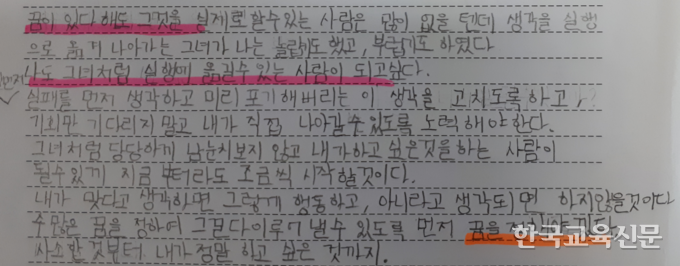 꿈이 있다 해도 그것을 실제로 할수있는 사람은 많이 없을 텐데 생각을 실행
으로 옮겨 나아가는 그녀가 나는 놀랍기도 했고, 부럽기도 하였다
나도 그녀처럼 실행에 옮길수 있는 사람이 되고싶다.
먼저
실패를 먼저 생각하고 미리 포기해버리는 이 생각을 고치도록 하고,
기회만 기다리지 말고 내가 직접 나아갈 수 있도록 노력해야 한다.
그녀처럼 당당하게 남눈치보지 않고 내가하고 싶은것을 하는 사람이
될수있게 지금 부터라도 조금씩 시작할것이다.
내가 맞다고 생각하면 그렇게 행동하고, 아니라고 생각되면 하지않을것이다
수많은 꿈을 정하여 그보다 이루어 낼수 있도록 먼저 꿈을
사소한 것부터 내가 정말 하고 싶은 것까지.
한국교육신문